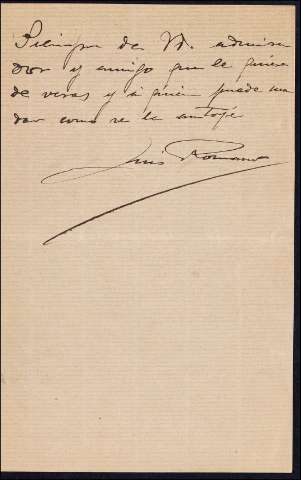 Siempre de Vd. admira
dor y amigo que le quiere
de veras y á quien puede man
dar como se le antoje
Luis Romano